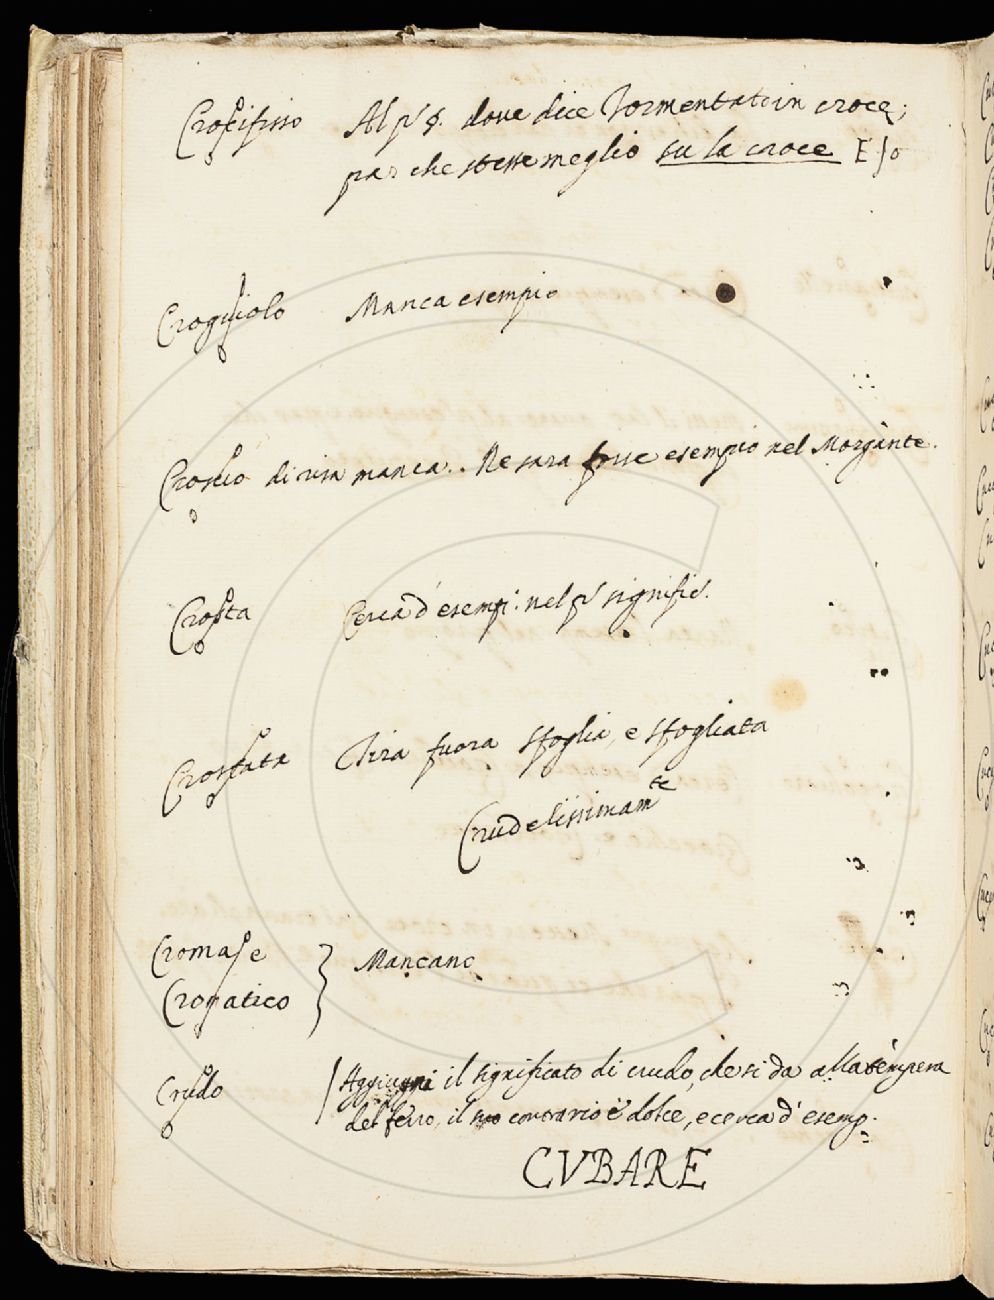 Crocifisso Al p.º §. dove dice Tormentato in croce;
par che stesse meglio su la croce
Crogiuolo Manca esempio
Croscio di risa manca. Ne sara forse esempio nel Morgante.
Crosta Cerca d'esemp: nel p.º signific.
Crostata Tira fuora sfoglia, e sfogliata
Crudelissimam.te
Croma, e
Cromatico } Mancano
Crudo Aggiugni il significato di crudo, che si da alla tempera
del ferro, il suo contrario è dolce, e cerca d'esemp.
CVBARE